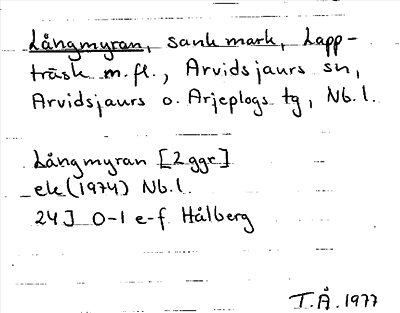 Långmyran, sank mark, Lapp-
träsk m.fl., Arvidsjaurs sn,
Arvidsjaurs o. Arjeplogs tg, Nb.l.
Långmyran [2 ggr]
ek (1974) Nb.l.
24J 0-1 e-f Hålberg
T.Å. 1977